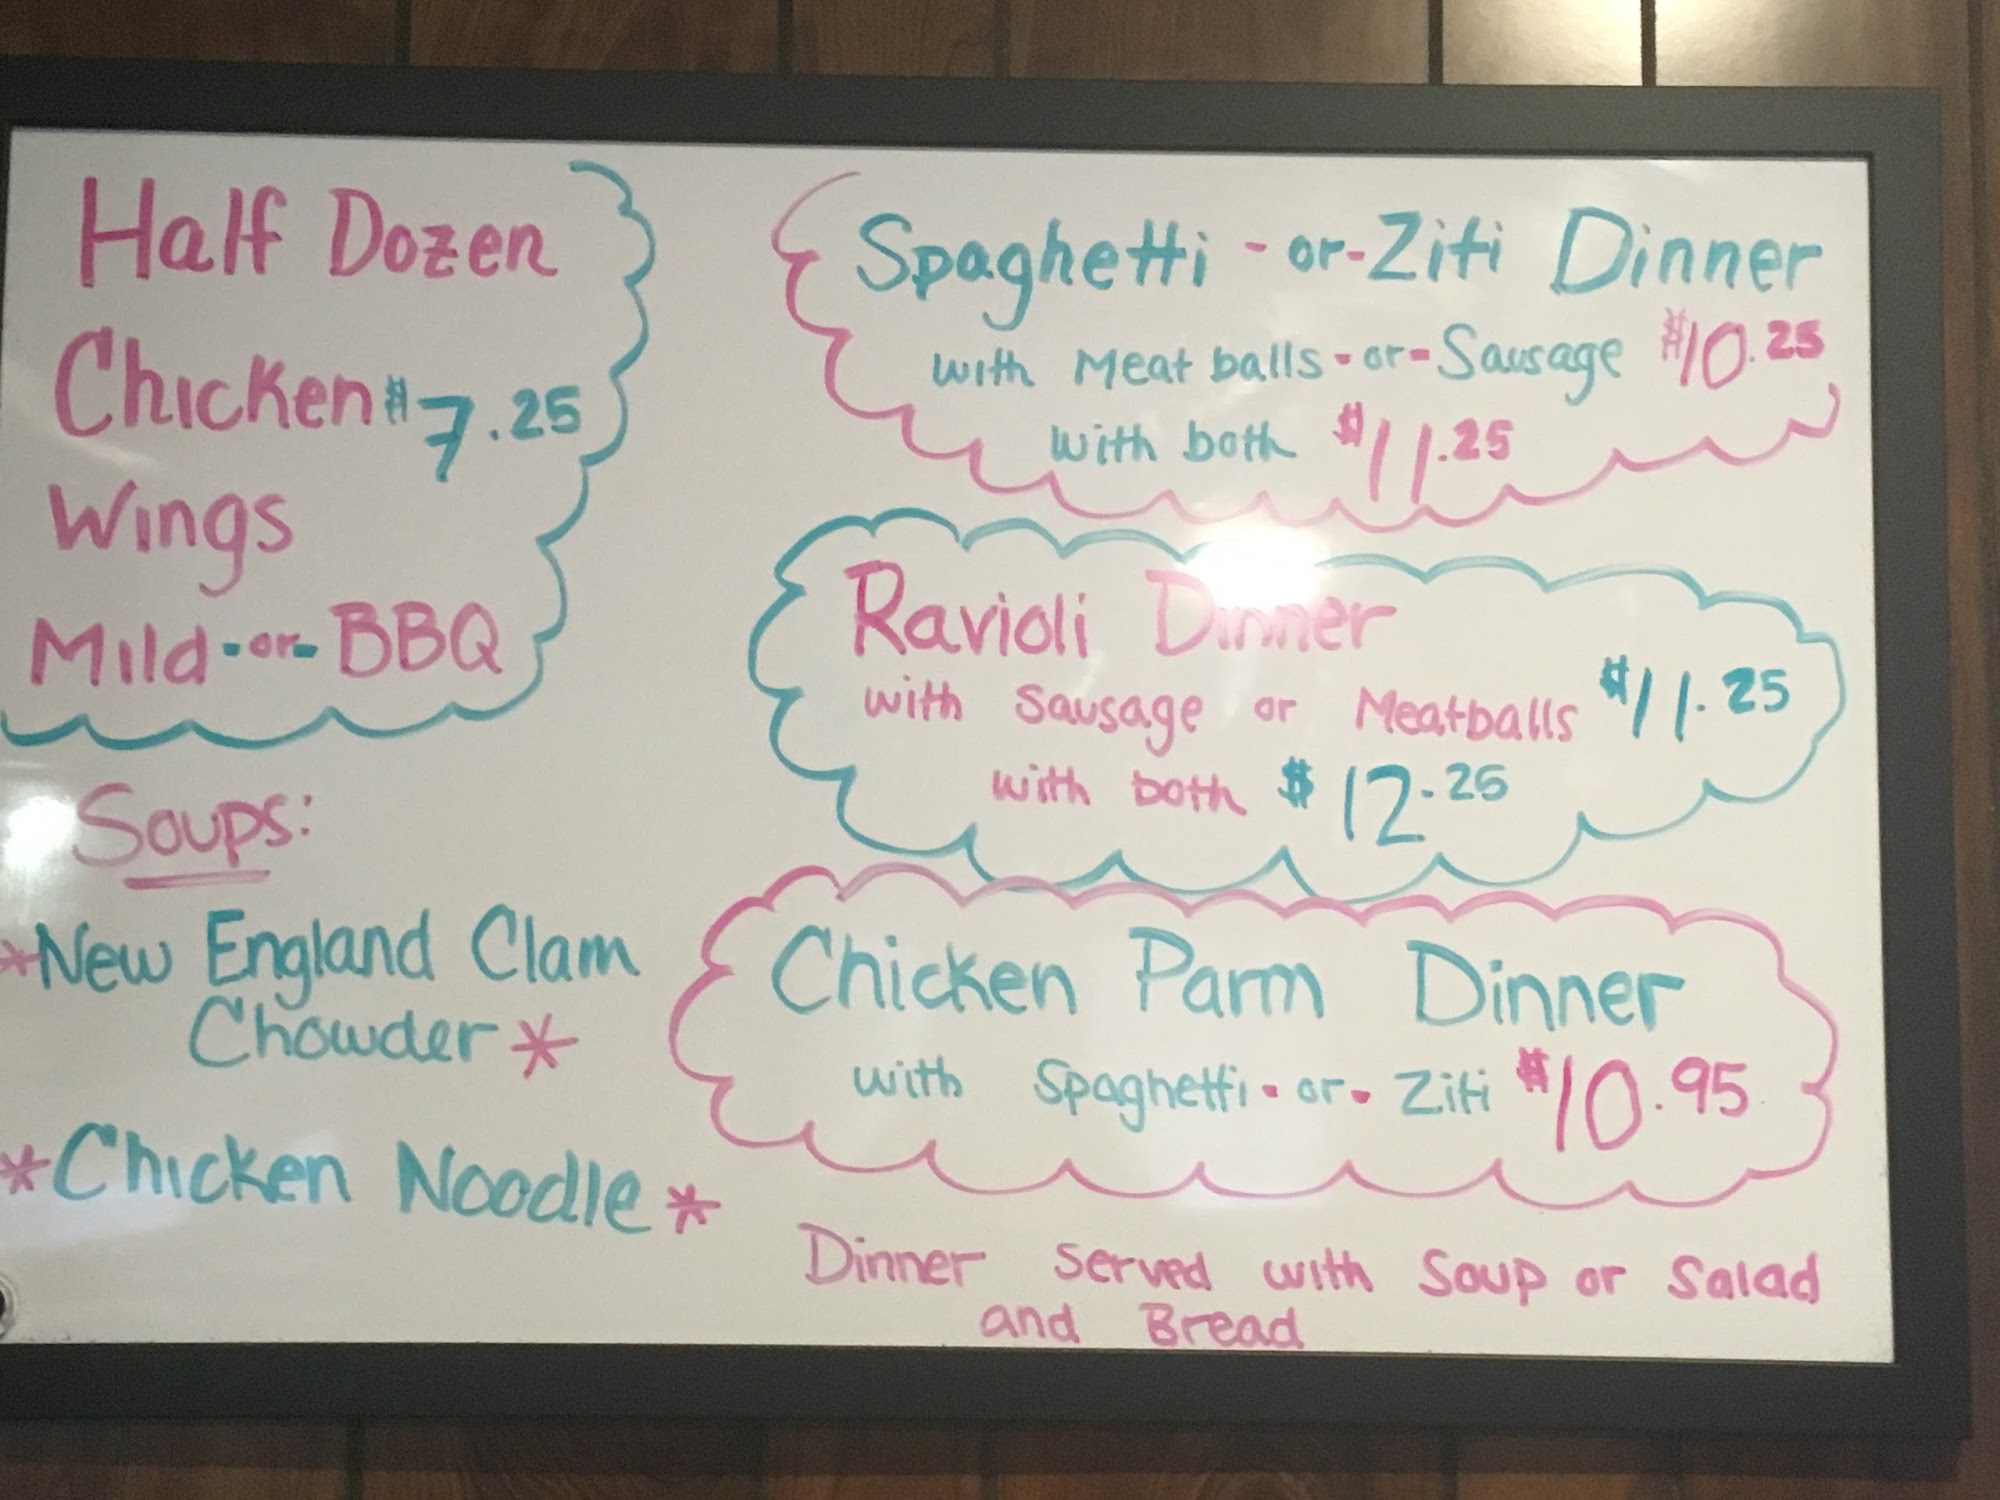 Half Dozen
Chicken $7.25
Wings
Mild-or-BBQ
Soups:
*New England Clam
Chowder*
*Chicken Noodle*
Spaghetti-or-Ziti Dinner
with Meat balls-or-Sausage $10.25
with both $11.25
Ravioli Dinner
with Sausage or Meatballs $11.25
with both $12.25
Chicken Parm Dinner
with Spaghetti-or-Ziti $10.95
Dinner served with Soup or Salad
and Bread